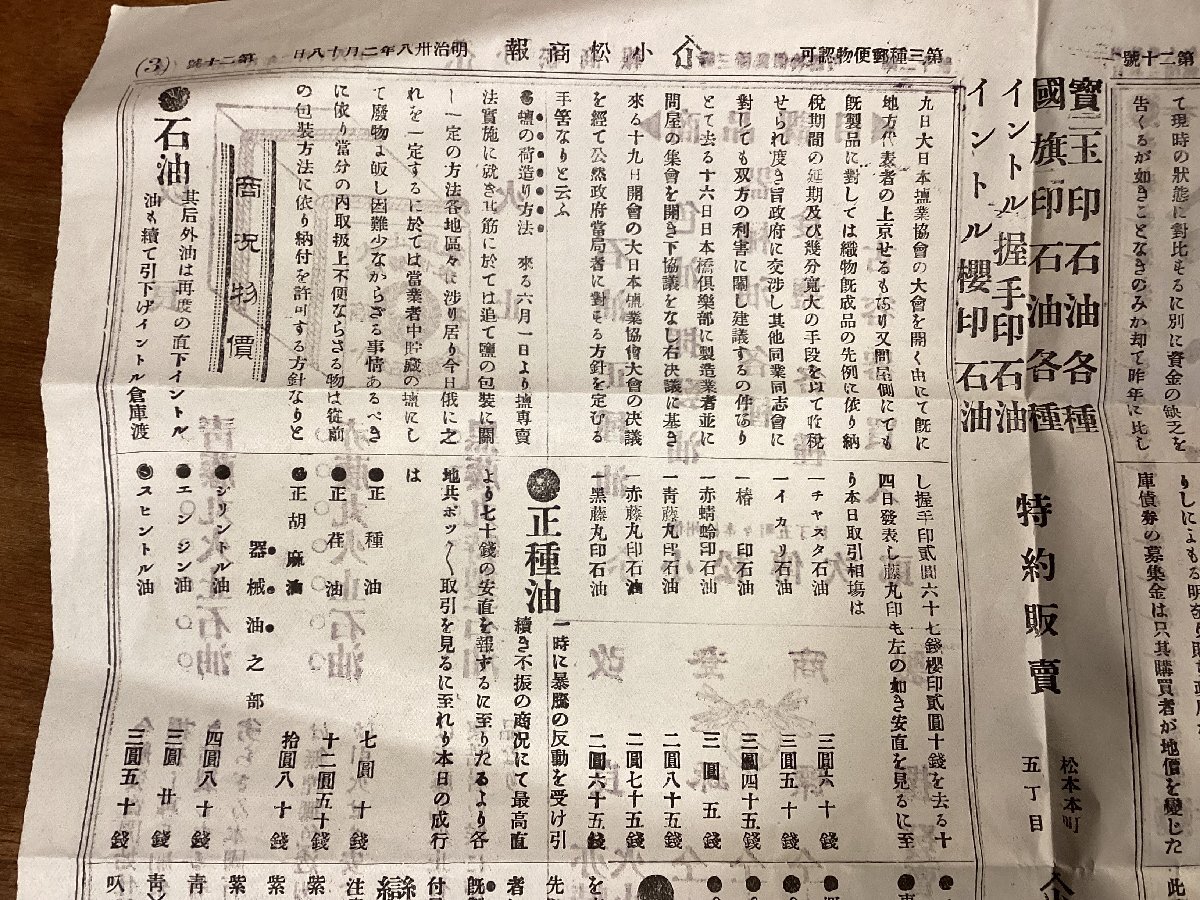 第二十號
て現時の狀態に對比もるに別に資金の缺乏を
告くるが如きことなきのみか却て昨年に比し
庫債劵の募集金は只其購買者が地價を變じた
寶玉印石油各種
國旗印石油各種
イントル握手印石油
イントル櫻印石油
特約販賣
松本本町
五丁目
第三種郵便物認可
小松商報
明治卅八年二月十八日
第二十號
(3)
九日大日本塩業協會の大會を開く由にて既に
地方代表者の上京せるもあり又問屋側にても
既製品に對しては織物既成品の先例に依り納
稅期間の延期及び幾分寬大の手段を以て收稅
せられ度き旨政府に交涉し其他同業同志會に
對しても双方の利害に關し建議するの件あり
とて去る十六日日本橋倶樂部に製造業者並に
問屋の集會を開き下協議をなし右决議に基き
來る十九日開會の大日本塩業協會大會の决議
を經て公然政府當局者に對もる方針を定むる
手筈なりと云ふ
●塩の荷造り方法 來る六月一日より塩專賣
法實施に就き其筋に於ては追て鹽の包裝に關
し一定の方法各地區々に涉り居り今日俄に之
れを一定するに於ては當業者中貯藏の塩にし
て廢物に皈し困難少なからざる事情あるべき
に依り當分の內取扱上不便ならさる物は從前
の包裝方法に依り納付を許可する方針なりと
商况物價
●石油
其后外油は再度の直下イントル
油も續て引下げイントル倉庫渡
し握手印貳圓六十七錢櫻印貳圓十錢を去る十
四日發表し藤丸印も左の如き安直を見るに至
り本日取引相塲は
一チャスタ石油 三圓六十錢
一イカリ石油 三圓五十錢
一椿印石油 三圓四十五錢
一赤蜻蛉印石油 三圓五錢
一靑藤丸印石油 二圓八十五錢
一赤藤丸印石油 二圓七十五錢
一黑藤丸印石油 二圓六十五錢
●正種油
一時に暴騰の反動を受け引
續き不振の商况にて最高直
より七十錢の安直を報ずるに至りたるより各
地共ボツ〱取引を見るに至れり本日の成行
は
●正種油 七圓十錢
●正荏油 十二圓五十錢
●正胡麻油 拾圓八十錢
器械油之部
●シリントル油 四圓八十錢
●エンジン油 三圓廿錢
●スヒントル油 三圓五十錢